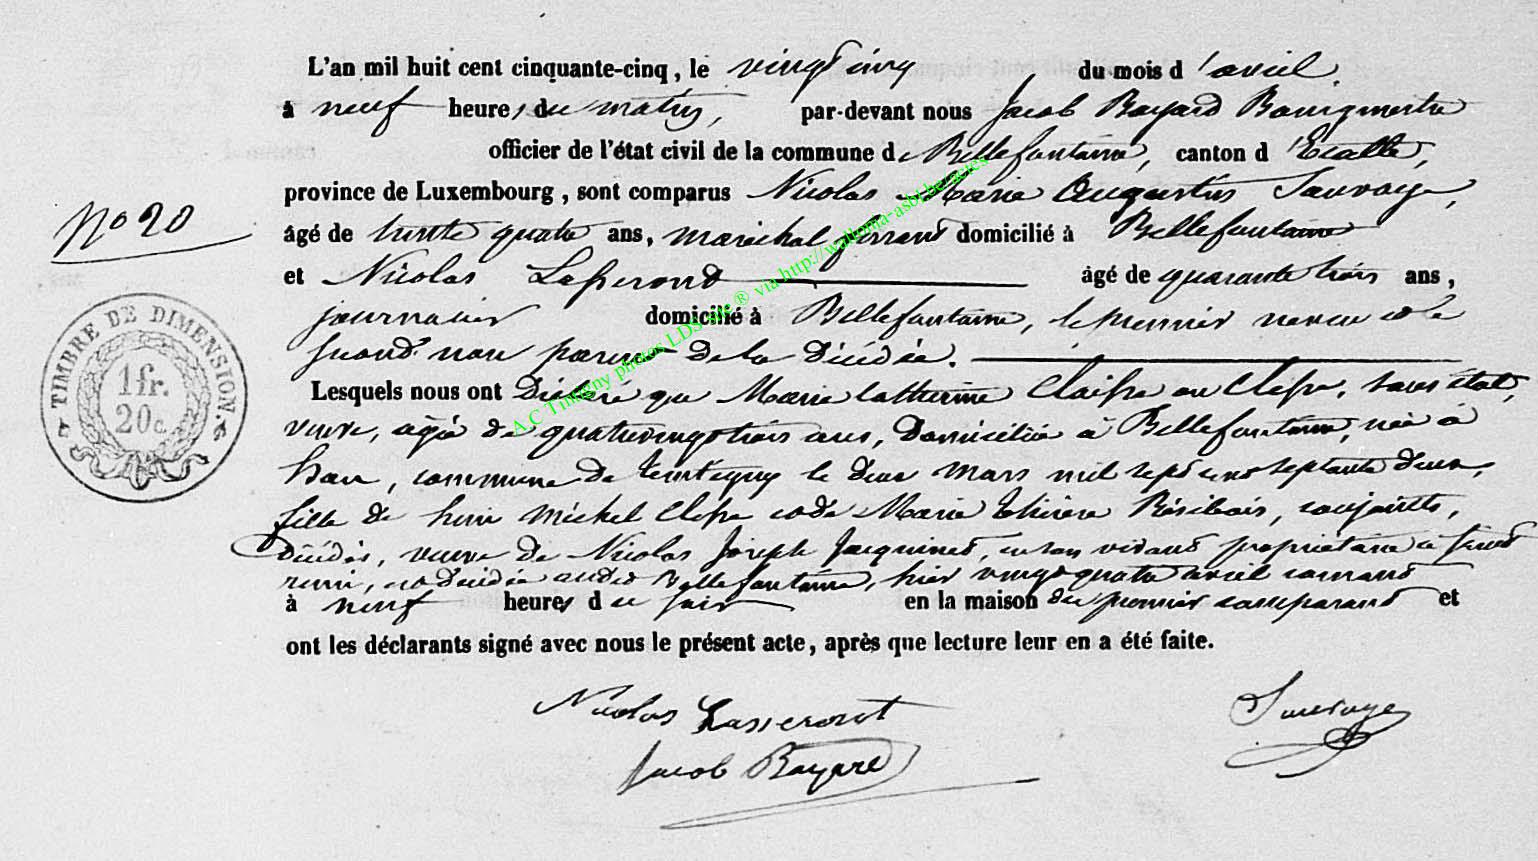 L'an mil huit cent cinquante-cinq, le vingt cinq du mois d'avril
à neuf heures du matin, par-devant nous Jacob Bayard Bourgmestre
officier de l'état civil de la commune de Bellefontaine, canton d'Etalle,
province de Luxembourg, sont comparus Nicolas Marie Augustin Sauvage,
No 20
âgé de trente quatre ans, maréchal ferrant domicilié à Bellefontaine
et Nicolas Lasseront âgé de quarante trois ans,
journalier domicilié à Bellefontaine, le premier neveu et le
second non parent de la Décédée.
Lesquels nous ont Déclaré que Marie Catherine Claisse ou Clesse, sans état,
veuve, agée de quatrevingt trois ans, Domiciliée à Bellefontaine, née à
han, commune de tintigny le deux mars mil sept cent septante deux,
fille de henri michel Clesse et de Marie thérèse conjoints,
Décédés, veuve de Nicolas Joseph Jacquinet, en son vivant propriétaire à
et décédée audit Bellefontaine, hier vingt quatre avril courant
à neuf heures du soir en la maison du premier comparant et
ont les déclarants signé avec nous le présent acte, après que lecture leur en a été faite.
Nicolas Lasseront Sauvage
Jacob Bayard
TIMBRE DE DIMENSION.
1 fr.
20 c.
A.C Tintigny photos LDS site ® via http://wallonia-asbl.be/actes